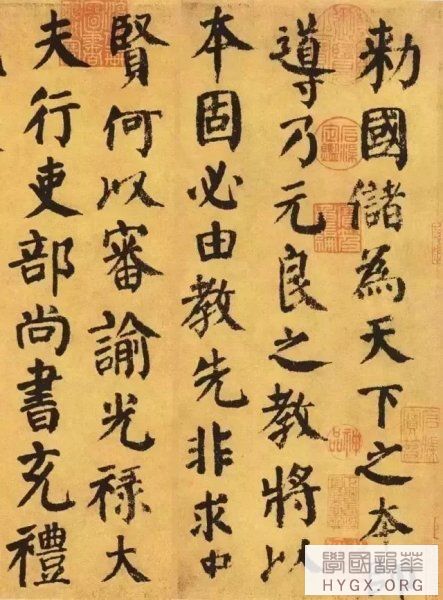 勑國儲為天下之本
導乃元良之教將以
本固必由教先非求中
賢何以審諭光祿大
夫行吏部尚書充禮
神品
華韻國學
HYGX.ORG